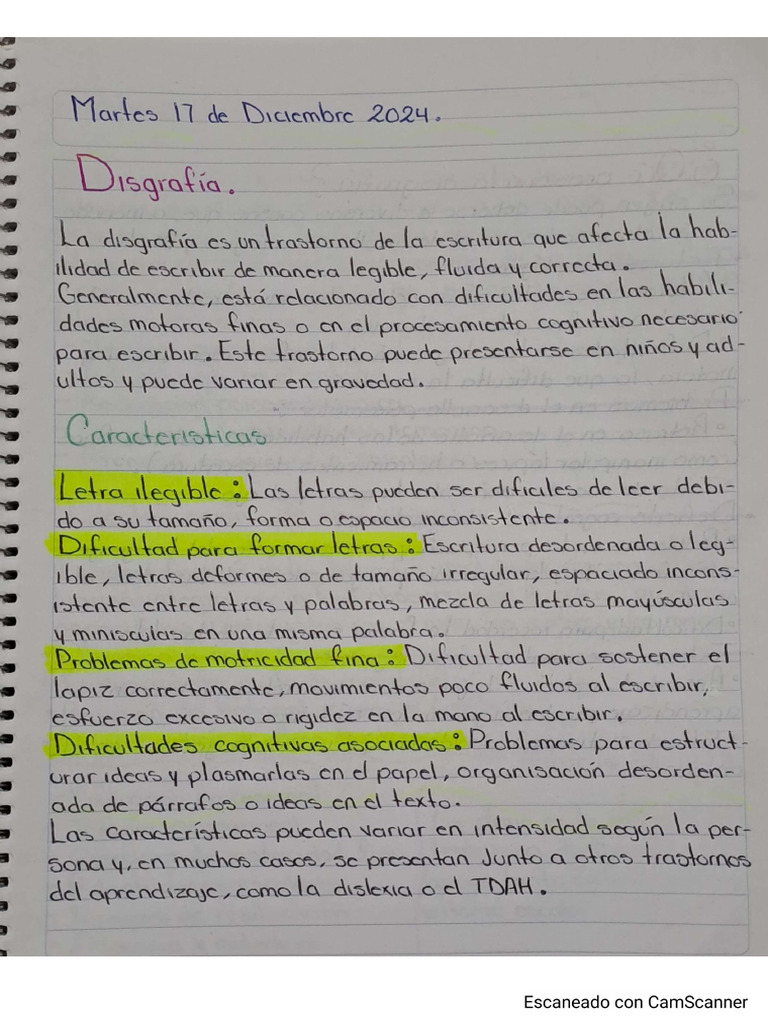 Martes 17 de Diciembre 2024.
Disgrafía.
La disgrafía es un trastorno de la escritura que afecta la hab-
ilidad de escribir de manera legible, fluida y correcta.
Generalmente, está relacionado con dificultades en las habili-
dades motoras finas o en el procesamiento cognitivo necesario
para escribir. Este trastorno puede presentarse en niños y ad-
ultos y puede variar en gravedad.
Caracteristicas
Letra ilegible: Las letras pueden ser dificiles de leer debi-
do a su tamaño, forma o espacio inconsistente.
Dificultad para formar letras: Escritura desordenada o leg-
ible, letras deformes o de tamaño irregular, espaciado incons-
istente entre letras y palabras, mezcla de letras mayúsculas
y minisculas en una misma palabra.
Problemas de motricidad fina: Dificultad para sostener el
lapiz correctamente, movimientos poco fluidos al escribir,
esfuerzo excesivo o rigidez en la mano al escribir.
Dificultades cognitivas asociadas: Problemas para estruct-
urar ideas y plasmarlas en el papel, organisación desorden-
ada de párrafos o ideas en el texto.
Las características pueden variar en intensidad según la per-
sona y, en muchos casos, se presentan junto a otros trastornos
del aprendizaje, como la dislexia o el TDAH.
Escaneado con CamScanner